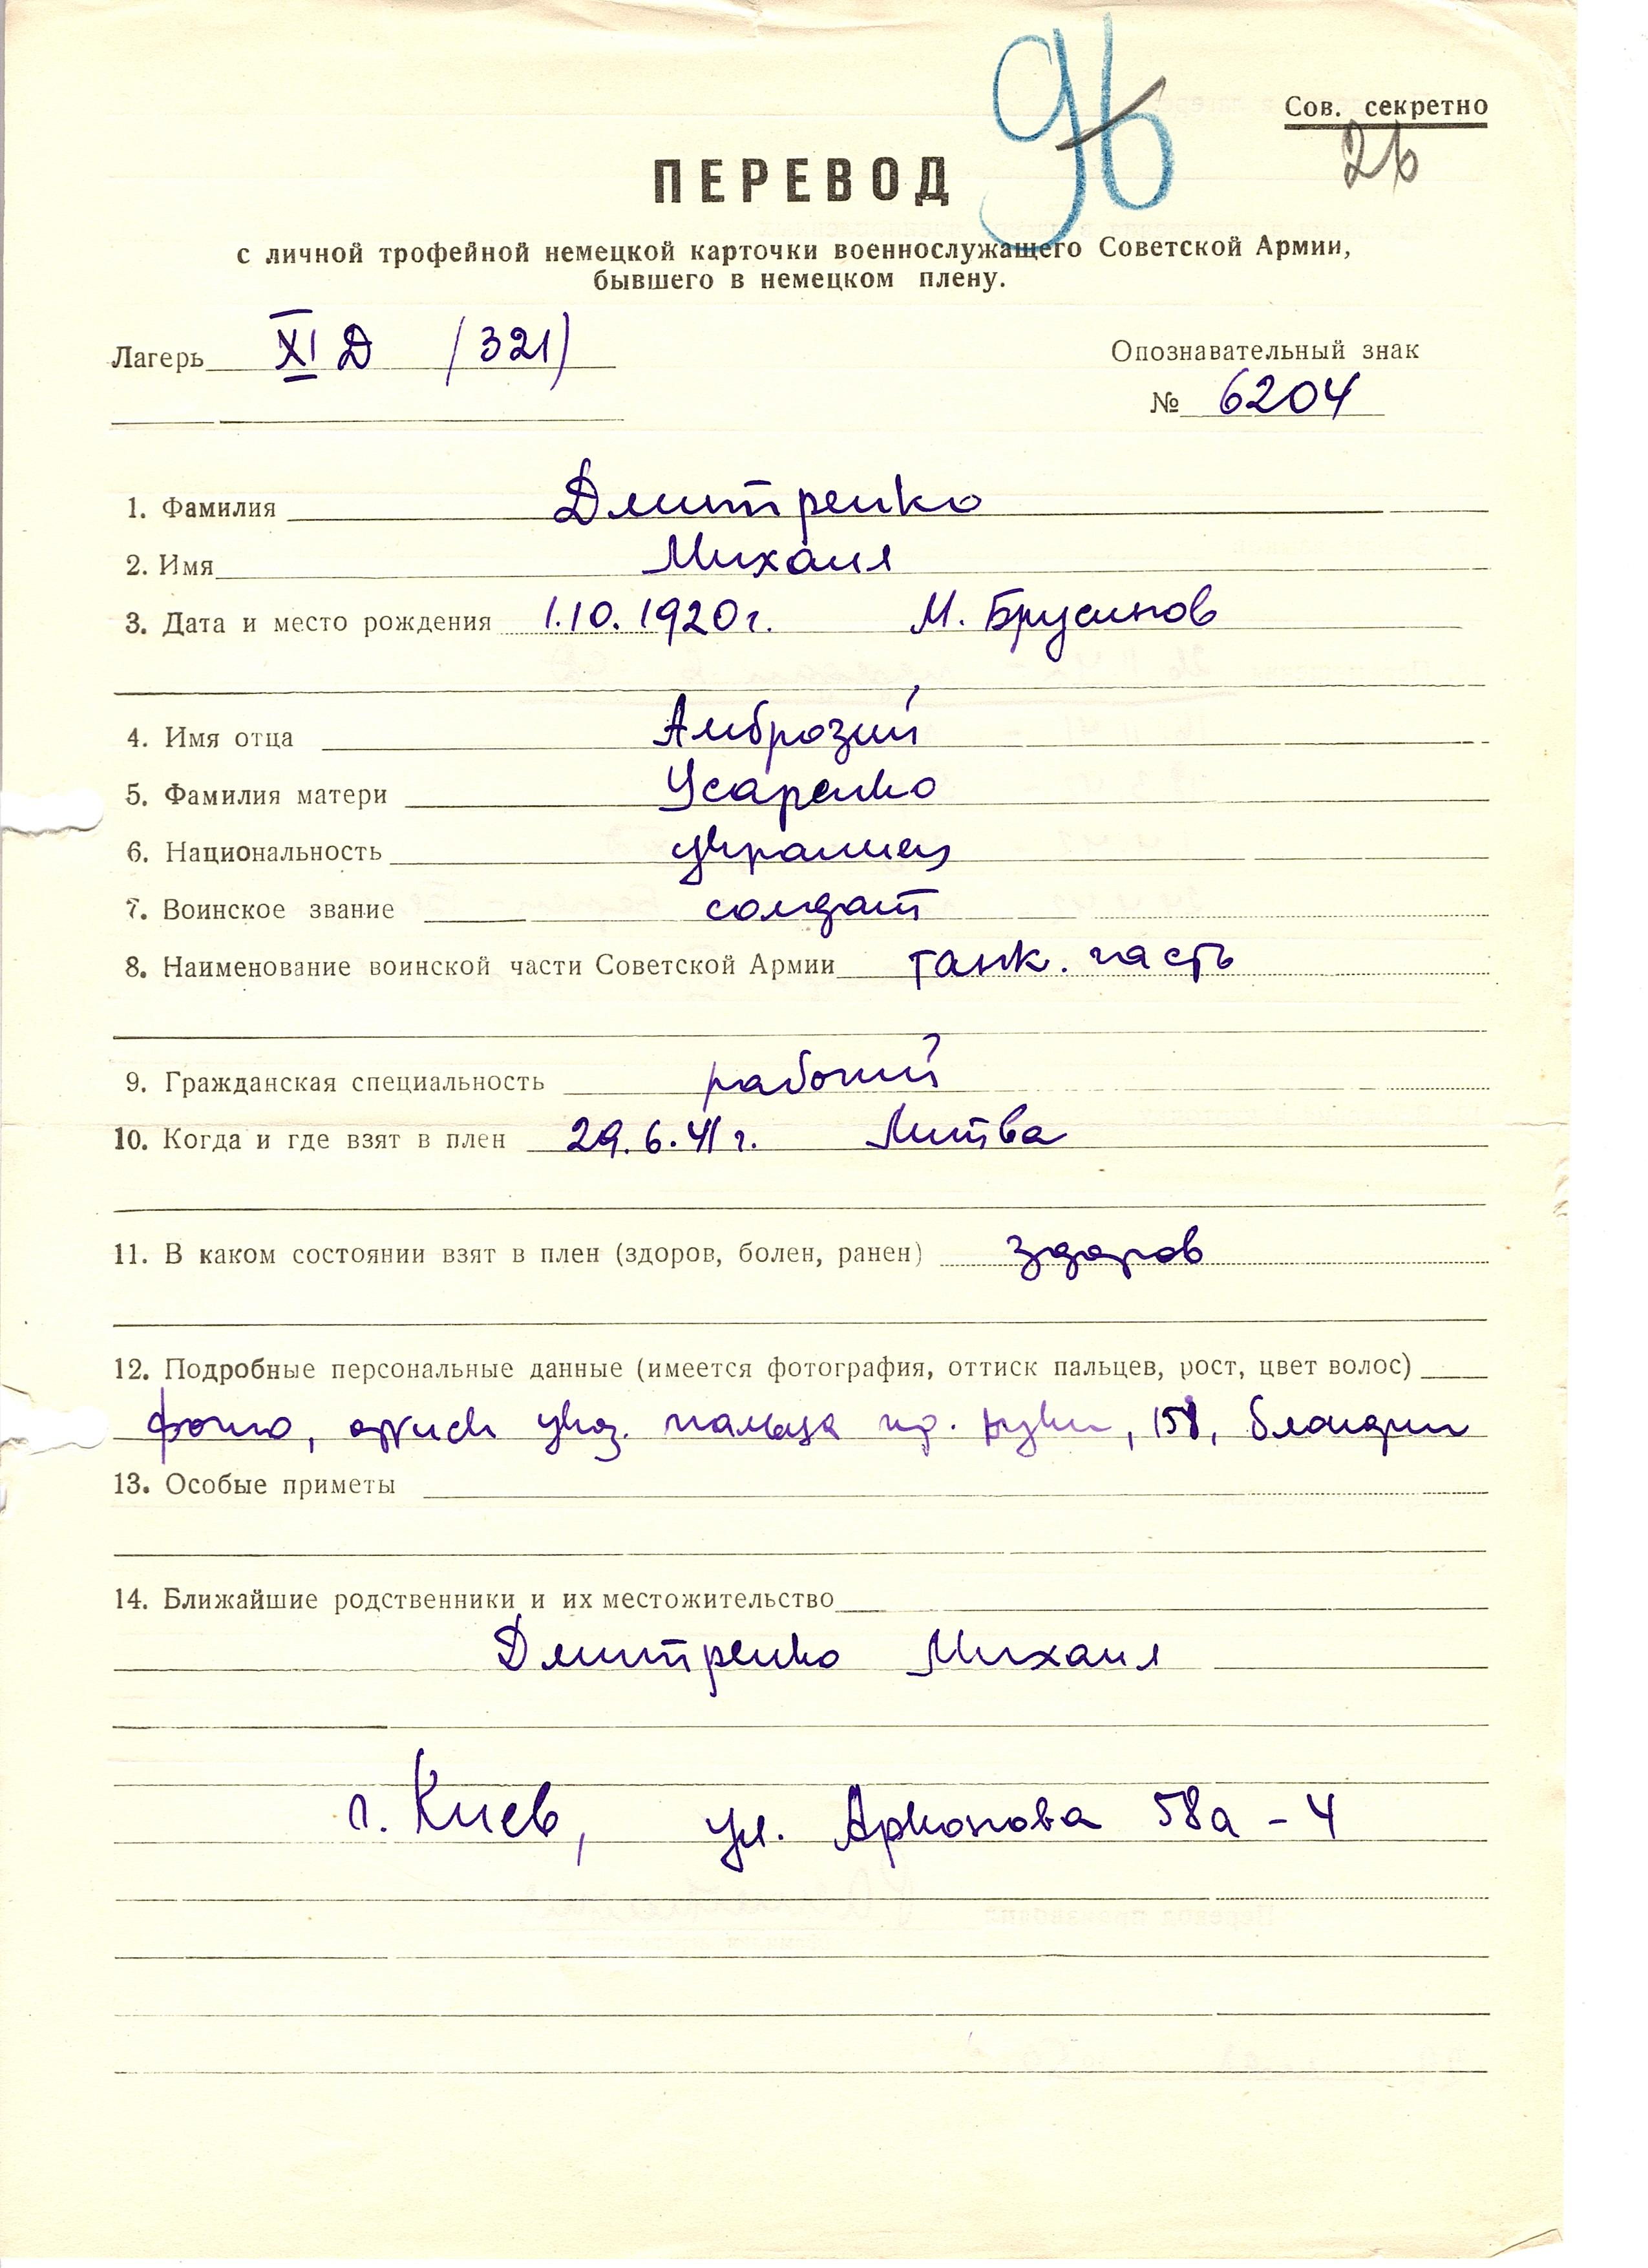 96
Сов. секретно
26
ПЕРЕВОД
с личной трофейной немецкой карточки военнослужащего Советской Армии,
бывшего в немецком плену.
Лагерь XI Д (321)
Опознавательный знак
№ 6204
1. Фамилия Дмитренко
2. Имя Михаил
3. Дата и место рождения 1.10.1920г. М. Брусинов
4. Имя отца Амброзий
5. Фамилия матери Усаренко
6. Национальность украинец
7. Воинское звание солдат
8. Наименование воинской части Советской Армии танк. часть
9. Гражданская специальность рабочий
10. Когда и где взят в плен 29.6.41г. Литва
11. В каком состоянии взят в плен (здоров, болен, ранен) здоров
12. Подробные персональные данные (имеется фотография, оттиск пальцев, рост, цвет волос)
фото, оттиск указ. пальца пр. руки, 158, блондин
13. Особые приметы
14. Ближайшие родственники и их местожительство
Дмитренко Михаил
г. Киев, ул. 58а - 4